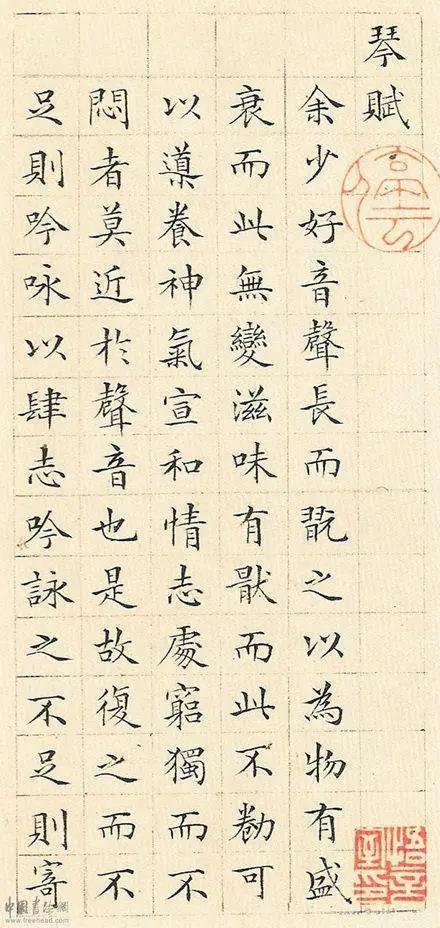 琴賦
余少好音聲長而翫之以為物有盛
衰而此無變滋味有猒而此不勌可
以導養神氣宣和情志處窮獨而不
悶者莫近於聲音也是故復之而不
足則吟咏以肆志吟詠之不足則寄
停云
悟言室印
中国书法網
www.treehead.com